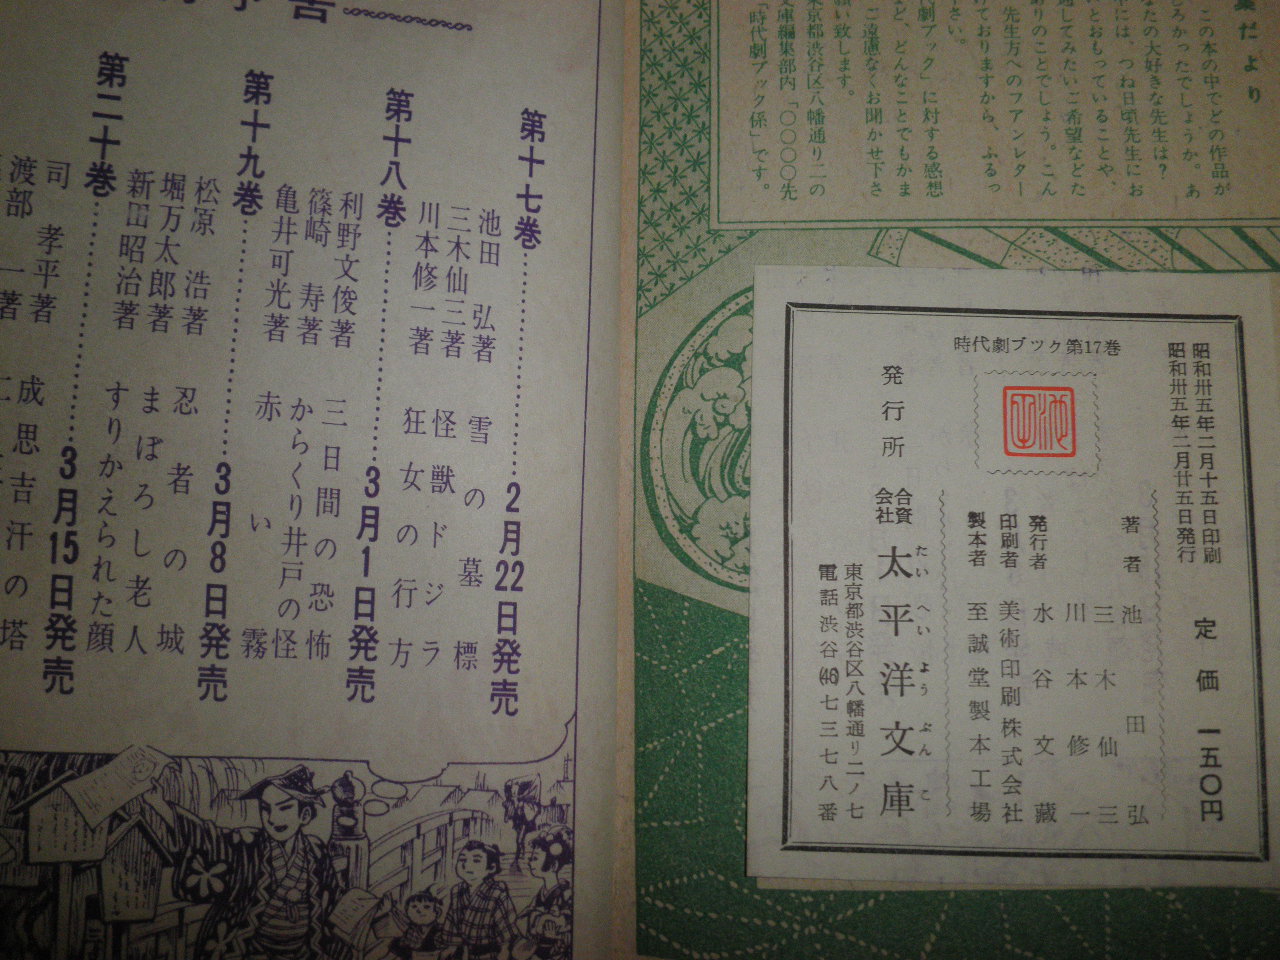 集だより
この本の中でどの作品が
しろかったでしょうか。あ
なたの大好きな先生は?
中には、つね日頃先生にお
いとおもっていることや、
通してみたいご希望などた
ありのことでしょう。こん
先生方へのファンレター
けておりますから、ふるっ
さい。
代劇ブック」に対する感想
など、どんなことでもかま
ご遠慮なくお聞かせ下さ
願い致します。
東京都渋谷区八幡通り二の
文庫編集部内「〇〇〇〇先
「時代劇ブック係」です。
時代劇ブツク第17巻
昭和卅五年二月十五日印刷
昭和卅五年二月廿五日発行
定価 一五〇円
著者 池田弘
三木仙三
川本修一
発行者 水谷文蔵
印刷者 美術印刷株式会社
製本者 至誠堂製本工場
発行所 合資会社 太平洋文庫
たいへいようぶんこ
東京都渋谷区八幡通リ二ノ七
電話渋谷(46)七三七八番
予告
第十七巻……2月22日発売
池田弘著 雪の墓標
三木仙三著 怪獣ドジラ
川本修一著 狂女の行方
第十八巻……3月1日発売
利野文俊著 三日間の恐怖
篠崎寿著 からくり井戸の怪
亀井可光著 赤い霧
第十九巻……3月8日発売
松原浩著 忍者の城
堀万太郎著 まぼろし老人
新田昭治著 すりかえられた顔
第二十巻……3月15日発売
司孝平著 成思吉汗の塔
渡部一著